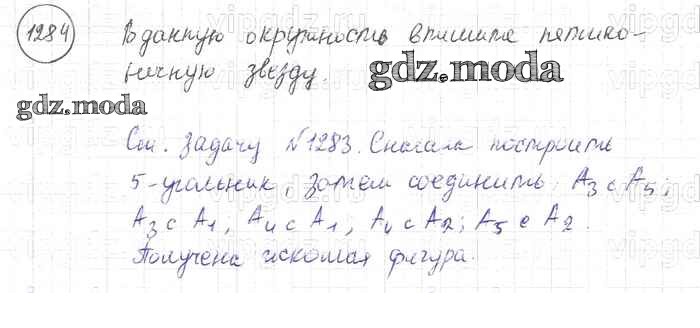 1284 В данную окружность впишите пятико-
нечную звезду.
gdz.moda
gdz.moda
См. задачу №1283. Сначала построить
5-угольник, затем соединить: A3 с A5;
A3 с A1; A4 с A1; A4 с A2; A5 с A2.
Получена искомая фигура.